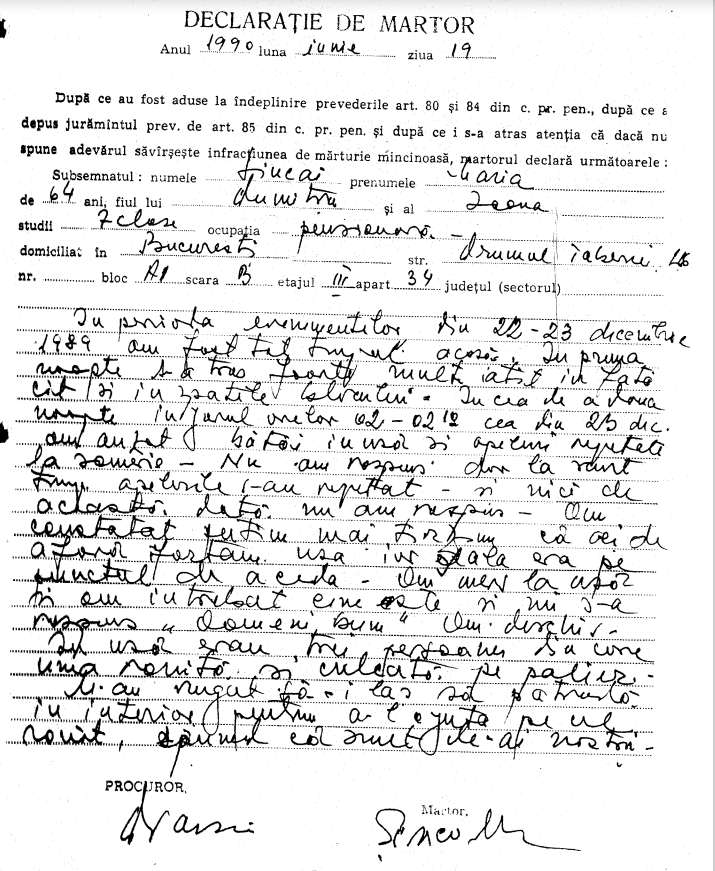 DECLARAŢIE DE MARTOR
Anul 1990 luna iunie ziua 19
După ce au fost aduse la îndeplinire prevederile art. 80 şi 84 din c. pr. pen., după ce a
depus jurămîntul prev. de art. 85 din c. pr. pen. şi după ce i s-a atras atenţia că dacă nu
spune adevărul săvîrşeşte infracţiunea de mărturie mincinoasă, martorul declară următoarele :
Subsemnatul : numele prenumele Maria
de 64 ani, fiul lui Dumitru şi al Ioana
studii 7 clase ocupaţia pensionară -
domiciliat în Bucureşti str. Drumul Taberii
nr. bloc A1 scara B etajul III apart 34 judeţul (sectorul)
In perioada evenimentelor din 22-23 decembrie
1989 am fost tot timpul acasă. In prima
noapte s-a tras foarte mult atît in faţa
cît si in spatele blocului. In cea de a doua
noapte in jurul orelor 02 - 02 cea din 23 dec.
am auzit bătăi in usă si apeluri repetate
la sonerie - Nu am răspuns dar la scurt
timp apelurile s-au repetat - si nici de
această dată nu am răspuns - Am
constatat puţin mai tîrziu că cei de
afară forţau usa iar era pe
punctul de a ceda - Am mers la usă
si am intrebat cine este si mi s-a
răspuns "oameni buni" Am deschis -
La usă erau trei persoane din care
una rănită si culcată pe palier -
M-au rugat să-i las să pătrundă
in interior pentru a-l ajuta pe cel
rănit, spunînd că sunt de-ai nostri -
PROCUROR,
Martor,